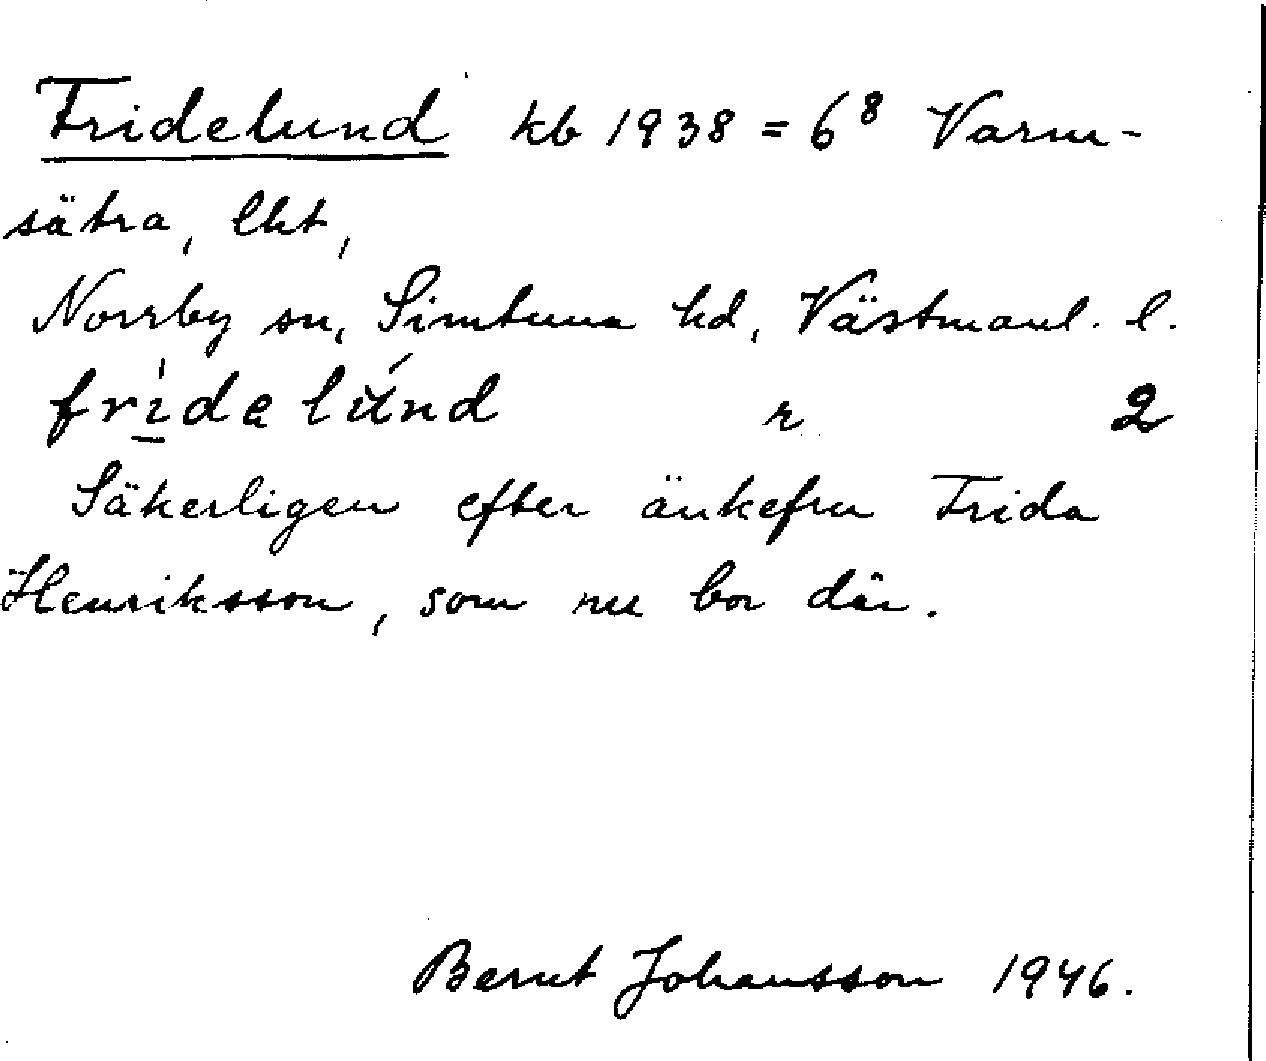 Fridelund kb 1938 = 6⁸ Varm-
sätra, lht,
Norrby sn, Simtuna hd, Västmanl. l.
frı̲̍dəlút́nd r 2
Säkerligen efter änkefru Frida
Henriksson, som nu bor där.
Bernt Johansson 1946.